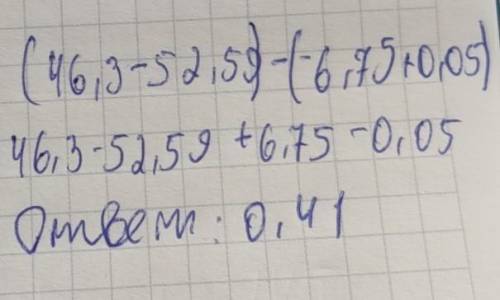 (46,3-52,59)-(-6,75+0,05)
46,3-52,59+6,75-0,05
Ответ: 0,41